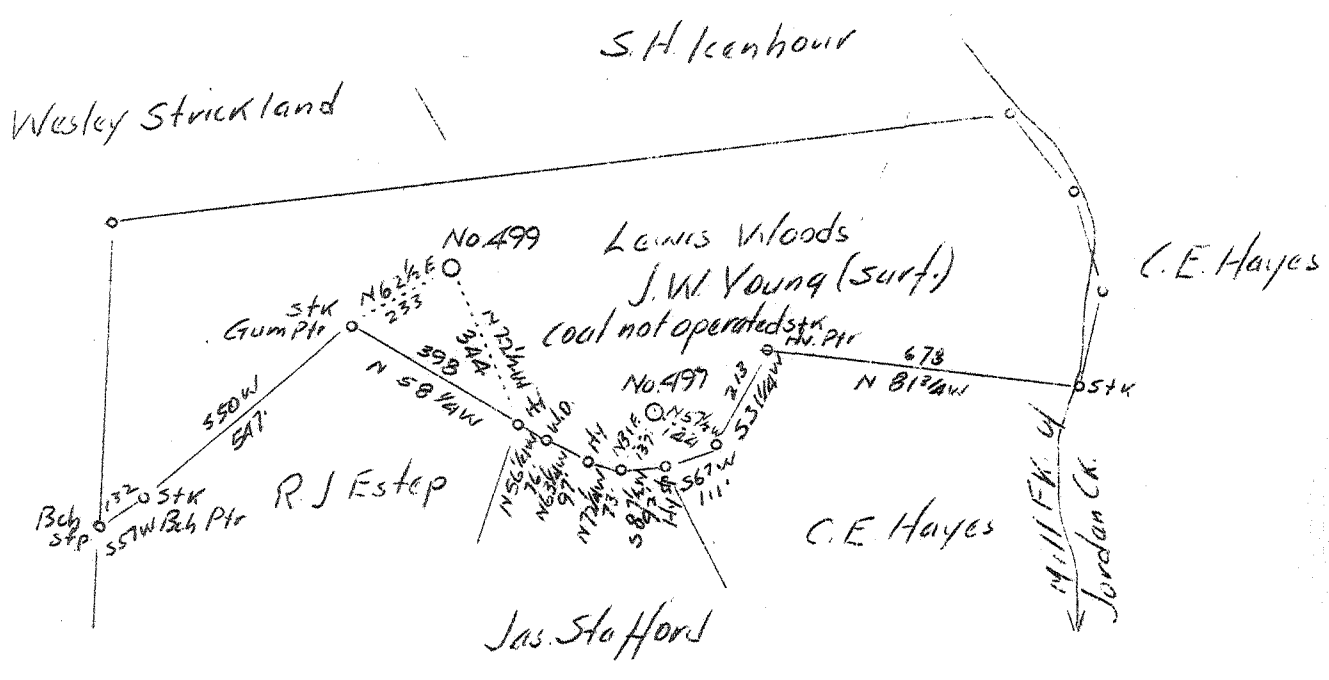 S.H. Icenhour
Wesley Strickland
No.499
Lewis Woods
J.W. Young (surf.)
coal not operated
C.E. Hayes
N62½E
233
Stk
Gum Ptr
N22½W
344
398
N 58¼W
Stk
Hy. Ptr
678
N 81¾W
Stk
No.497
213
S31¼W
N57½W
144
N31E
137
Hy
W.O.
Hy
S50W
547
132
Stk
Bch Ptr
Bch
Stp
S57W
R.J Estep
N56¼W
76
N63¼W
97
N72¼W
73
S87½W
92
Hy Stp
S67W
111
C.E. Hayes
Mill Fk. of
Jordan Ck.
Jas. Stafford